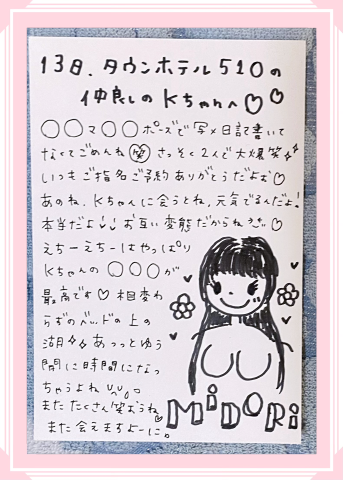 13日、タウンホテル510の
仲良しのKちゃんへ♡♡
〇〇マ〇〇ポーズで写メ日記書いて
なくてごめんね(笑) さっそく2人で大爆笑
いつもご指名ご予約ありがとうだよぉ♡
あのね、Kちゃんに会うとね、元気でるんだよ!
本当だよ!! お互い変態だからね♡
えちーえちーはやっぱり
Kちゃんの〇〇〇が
最高です♡ 相変わ
らずのベッドの上の
湖 あっっとゆう
間に時間になっ
ちゃうよね
またたくさん笑おうね
また会えますよーに。
MiDORi